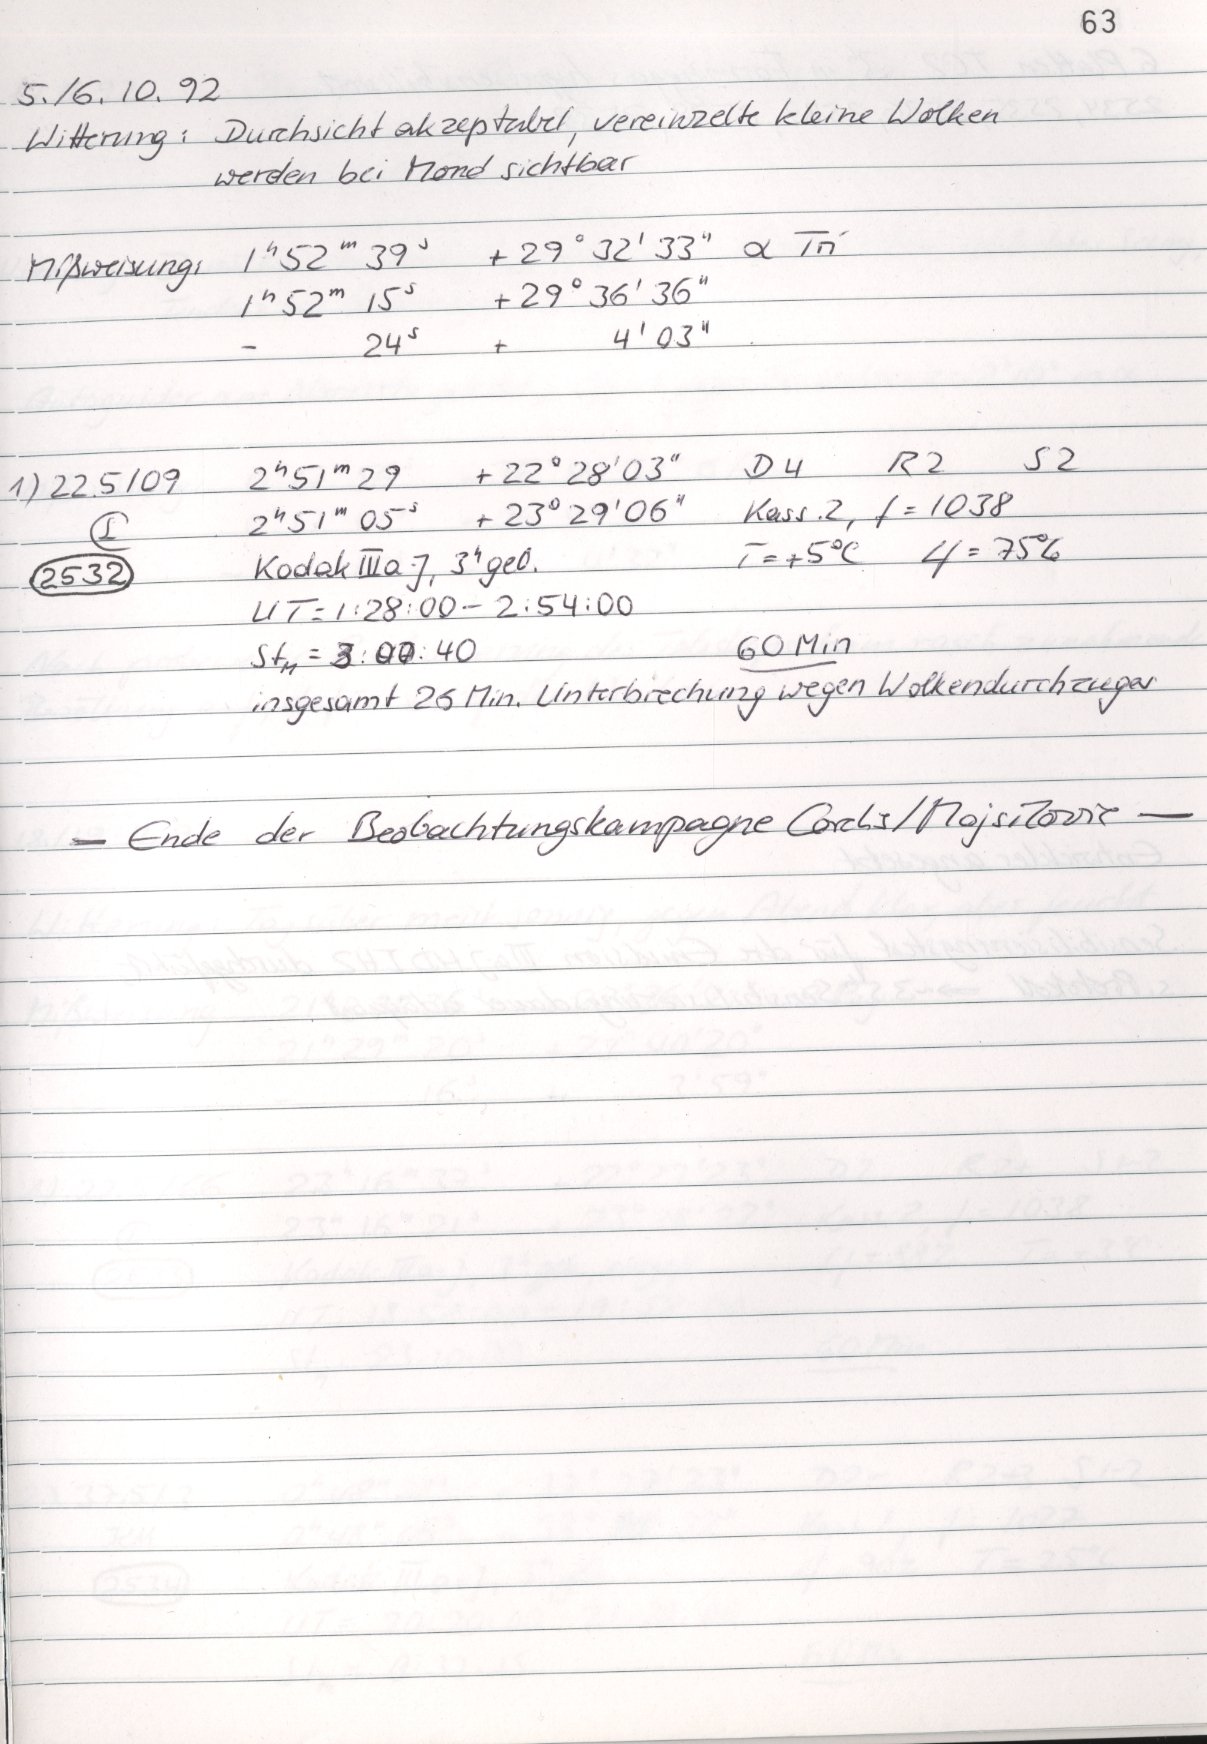 63
5./6.10.92
Witterung: Durchsicht akzeptabel, vereinzelte kleine Wolken
werden bei Mond sichtbar
Mißweisung: 1ʰ52ᵐ39ˢ +29°32'33" α Tri
1ʰ52ᵐ15ˢ +29°36'36"
- 24ˢ + 4'03"
1) 22.5/09 2ʰ51ᵐ29 +22°28'03" D4 R2 S2
I 2ʰ51ᵐ05ˢ +23°29'06" Kass. 2, f = 1038
2532 Kodak IIIa-J, 3ʰ geb. T = +5°C φ = 75%
UT = 1:28:00 - 2:54:00
St_M = 3:00:40 60 Min
insgesamt 26 Min. Unterbrechung wegen Wolkendurchzuges
— Ende der Beobachtungskampagne —